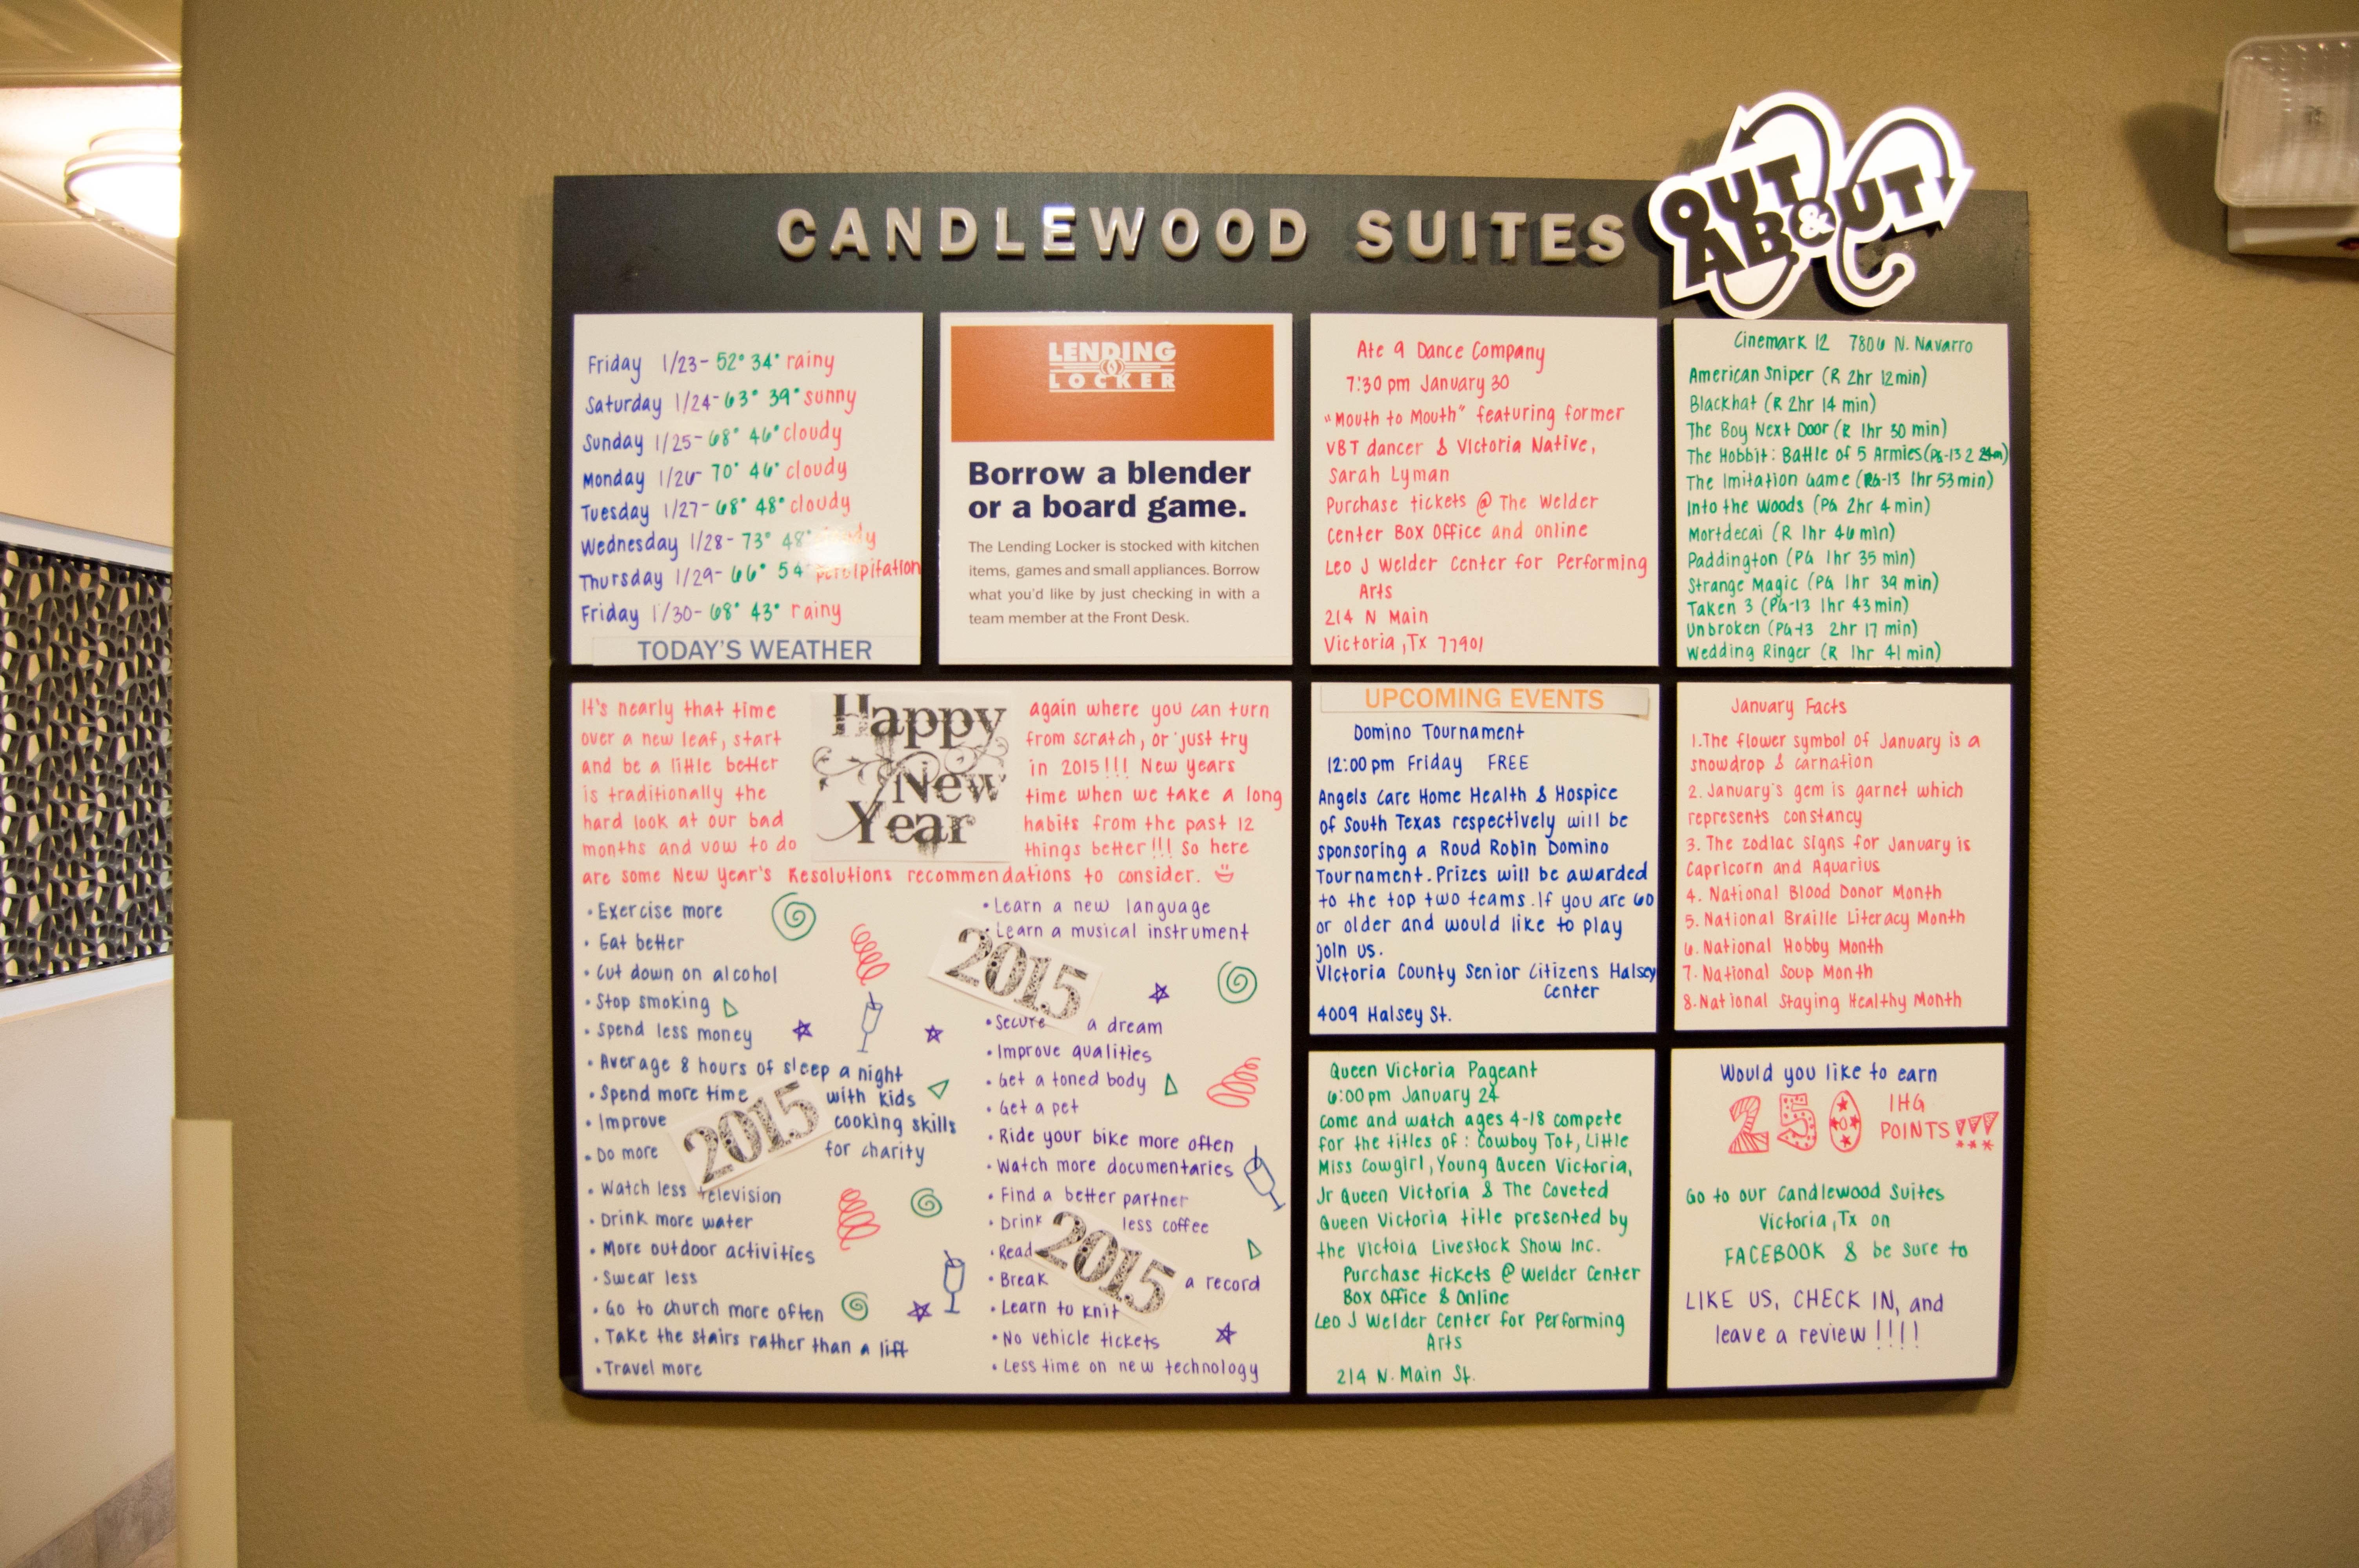 CANDLEWOOD SUITES
OUT & ABOUT
Friday 1/23- 52° 34° rainy
Saturday 1/24- 63° 39° sunny
Sunday 1/25- 68° 46° cloudy
Monday 1/26- 70° 46° cloudy
Tuesday 1/27- 68° 48° cloudy
Wednesday 1/28- 73° 48°
Thursday 1/29- 66° 54°
Friday 1/30- 68° 43° rainy
TODAY'S WEATHER
LENDING
LOCKER
Borrow a blender
or a board game.
The Lending Locker is stocked with kitchen
items, games and small appliances. Borrow
what you'd like by just checking in with a
team member at the Front Desk.
Ate 9 Dance Company
7:30 pm January 30
"Mouth to Mouth" featuring former
VBT dancer & Victoria Native,
Sarah Lyman
Purchase tickets @ The Welder
Center Box Office and online
Leo J Welder Center for Performing
Arts
214 N Main
Victoria, Tx 77901
Cinemark 12 7806 N. Navarro
American Sniper (R 2hr 12min)
Blackhat (R 2hr 14 min)
The Boy Next Door (R 1hr 30 min)
The Hobbit: Battle of 5 Armies (PG-13 2
The Imitation Game (PG-13 1hr 53min)
Into the Woods (PG 2hr 4 min)
Mortdecai (R 1hr 46 min)
Paddington (PG 1hr 35 min)
Strange Magic (PG 1hr 39 min)
Taken 3 (PG-13 1hr 43 min)
Unbroken (PG-13 2hr 17 min)
Wedding Ringer (R 1hr 41 min)
Happy
New
Year
It's nearly that time again where you can turn
over a new leaf, start from scratch, or just try
and be a little better in 2015!!! New years
is traditionally the time when we take a long
hard look at our bad habits from the past 12
months and vow to do things better!!! So here
are some New Year's Resolutions recommendations to consider.
• Exercise more
• Eat better
• Cut down on alcohol
• Stop smoking
• Spend less money
• Average 8 hours of sleep a night
• Spend more time with kids
• Improve cooking skills
• Do more for charity
• Watch less television
• Drink more water
• More outdoor activities
• Swear less
• Go to church more often
• Take the stairs rather than a lift
• Travel more
2015
• Learn a new language
• Learn a musical instrument
2015
• Secure a dream
• Improve qualities
• Get a toned body
• Get a pet
• Ride your bike more often
• Watch more documentaries
• Find a better partner
• Drink less coffee
• Read
2015
• Break a record
• Learn to knit
• No vehicle tickets
• Less time on new technology
UPCOMING EVENTS
Domino Tournament
12:00 pm Friday FREE
Angels Care Home Health & Hospice
of South Texas respectively will be
sponsoring a Roud Robin Domino
Tournament. Prizes will be awarded
to the top two teams. If you are 60
or older and would like to play
join us.
Victoria County Senior Citizens Halsey
Center
4009 Halsey St.
January Facts
1. The flower symbol of January is a
snowdrop & carnation
2. January's gem is garnet which
represents constancy
3. The zodiac signs for January is
Capricorn and Aquarius
4. National Blood Donor Month
5. National Braille Literacy Month
6. National Hobby Month
7. National Soup Month
8. National Staying Healthy Month
Queen Victoria Pageant
6:00 pm January 24
Come and watch ages 4-18 compete
for the titles of: Cowboy Tot, Little
Miss Cowgirl, Young Queen Victoria,
Jr Queen Victoria & The Coveted
Queen Victoria title presented by
the Victoia Livestock Show Inc.
Purchase tickets @ Welder Center
Box Office & Online
Leo J Welder Center for Performing
Arts
214 N. Main St.
Would you like to earn
250 IHG
POINTS!!!
Go to our Candlewood Suites
Victoria, Tx on
FACEBOOK & be sure to
LIKE US, CHECK IN, and
leave a review!!!!